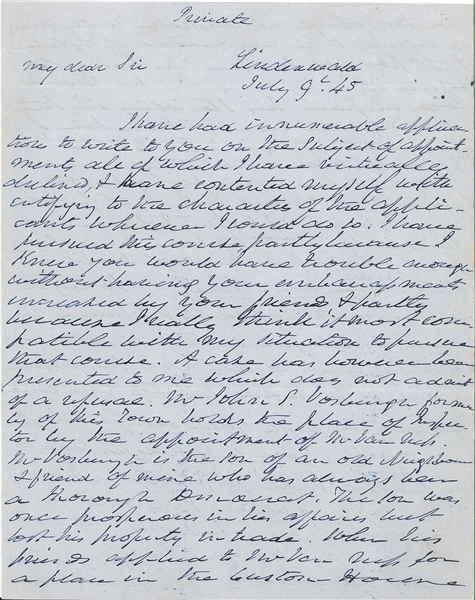 Private
My dear Sir Lindenwald
July 9th 45
I have had innumerable applica
tions to write to you on the subject of appoint
ments, all of which I have virtually
declined, & have contented myself with
certifying to the character of the appli-
cants whenever I could do so. I have
pursued this course partly because I
knew you would have trouble enough
without having your embarrassment
increased by your friends & partly
because I really think it most com
patible with my situation to pursue
that course. A case has however been
presented to me which does not admit
of a refusal. Mr John S. Vosburgh former
ly of this Town holds the place of Inspec
tor by the appointment of Mr Van Ness.
Mr Vosburgh is the son of an old Neighbour
& friend of mine who has always been
a thorough Democrat. The son was
once prosperous in his affairs but
lost his property in trade. When his
friends applied to Mr Van Ness for
a place in the Custom House